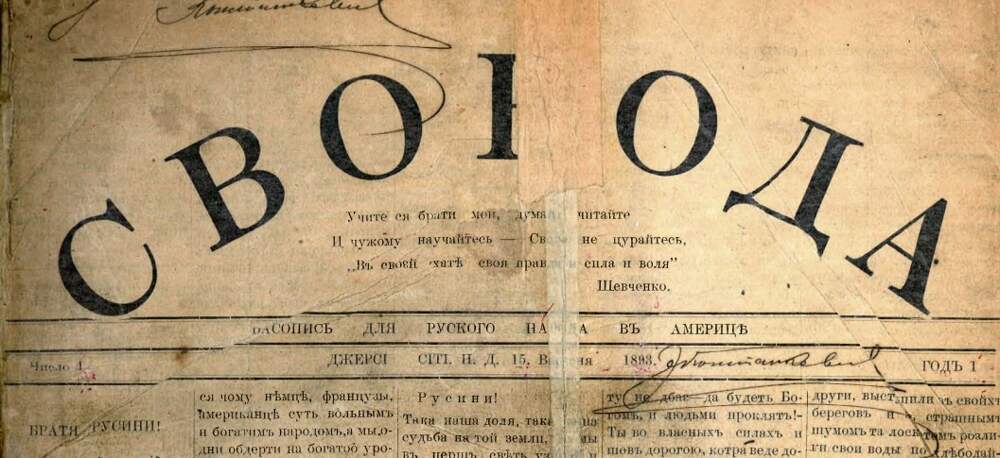 СВОБОДА
Учите ся брати мои, думайте, читайте
И чужому научайтесь — Свого не цурайтесь,
„Въ своєй хатѣ своя правда и сила и воля”
Шевченко.
ЧАСОПИСЬ ДЛЯ РУСКОГО НАРОДА ВЪ АМЕРИЦѢ
Число 1. ДЖЕРСІ СІТІ. Н. Д. 15, 1893. ГОДЪ 1
БРАТЯ РУСИНИ!
ся чому нѣмцѣ, французы,
американцѣ суть вольнымъ
и богатимъ народомъ, а мы,о-
дни обдерти на богатôв уро-
Русини!
Така наша доля, така наша
судьба на той земли,
въ першъ свѣтъ
ту не дбає — да будеть Бо-
гомъ, и людьми проклятъ!-
Ты во власныхъ силахъ и
шовъ дорогою, котра веде до-
други, выступили зъ своихъ
берегôвъ и съ страшнымъ
шумомъ та лоскотомъ розли-
ли свои воды по хлѣбодай-